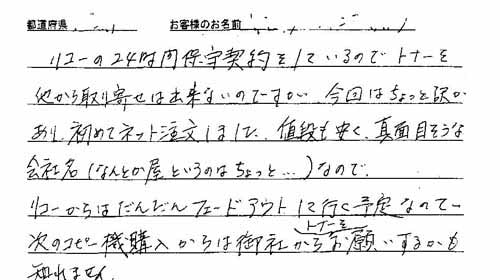 都道府県 お客様のお名前
リコーの24時間保守契約をしているのでトナーを
他から取り寄せは出来ないのですが、今回はちょっと訳が
あり、初めてネット注文しました。値段も安く、真面目そうな
会社名（なんとか屋というのはちょっと…）なので、
リコーからはだんだんフェードアウトに行く予定なので
トナーを
次のコピー機購入からは御社からお願いするかも
知れません。